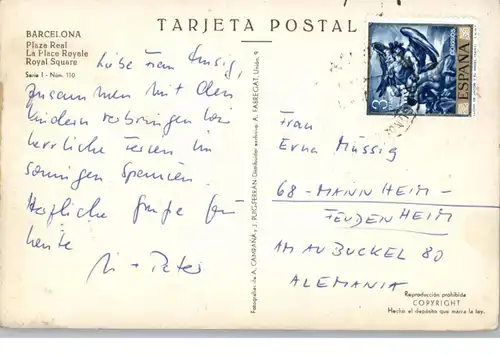 TARJETA POSTAL
BARCELONA
Plaza Real
La Place Royale
Royal Square
Serie I - Núm. 110
Liebe Frau Müssig,
zusammen mit den
Kindern verbringen wir
herrliche Ferien im
sonnigen Spanien
Herzliche Grüße für
heute
+ Peter
Fotografías de A. CAMPAÑÁ y J. PUIG-FERRÁN Distribuidor exclusivo: A. FABREGAT, Unión, 9
3
CORREOS
ESPAÑA
Frau
Erna Müssig
68-MANNHEIM-
FEUDENHEIM
AM AUBUCKEL 80
ALEMANIA
Reproducción prohibida
COPYRIGHT
Hecho el depósito que marca la ley.